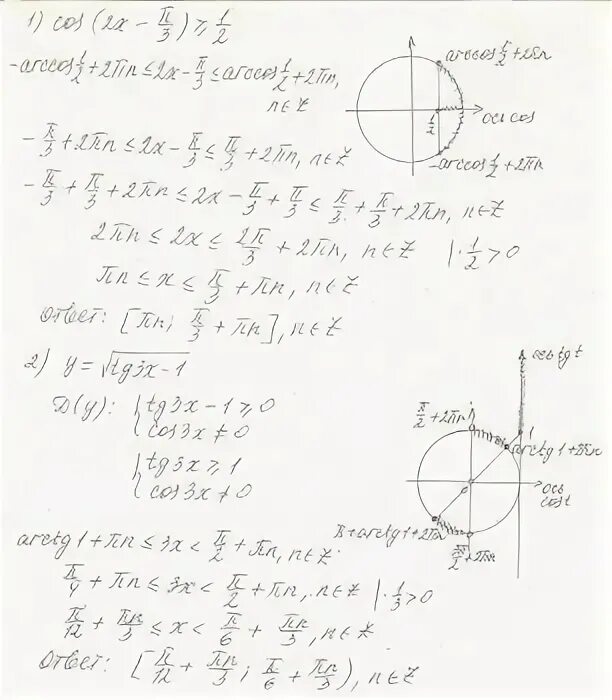 1) cos(2x - π/3) ≥ 1/2
-arccos 1/2 + 2πn ≤ 2x - π/3 ≤ arccos 1/2 + 2πn,
n∈Z
arccos 1/2 + 2πn
1/2
ось cos
-arccos 1/2 + 2πn
-π/3 + 2πn ≤ 2x - π/3 ≤ π/3 + 2πn, n∈Z
-π/3 + π/3 + 2πn ≤ 2x - π/3 + π/3 ≤ π/3 + π/3 + 2πn, n∈Z
2πn ≤ 2x ≤ 2π/3 + 2πn, n∈Z | · 1/2 > 0
πn ≤ x ≤ π/3 + πn, n∈Z
Ответ: [πn; π/3 + πn], n∈Z
2) y = √(tg3x - 1)
D(y): { tg3x - 1 ≥ 0
{ cos3x ≠ 0
{ tg3x ≥ 1
{ cos3x ≠ 0
ось tg t
π/2 + 2πn
1
arctg1 + 2πn
0
ось
cos t
π + arctg1 + 2πn
3π/2 + 2πn
arctg1 + πn ≤ 3x < π/2 + πn, n∈Z
π/4 + πn ≤ 3x < π/2 + πn, n∈Z | · 1/3 > 0
π/12 + πn/3 ≤ x < π/6 + πn/3, n∈Z
Ответ: [π/12 + πn/3; π/6 + πn/3), n∈Z